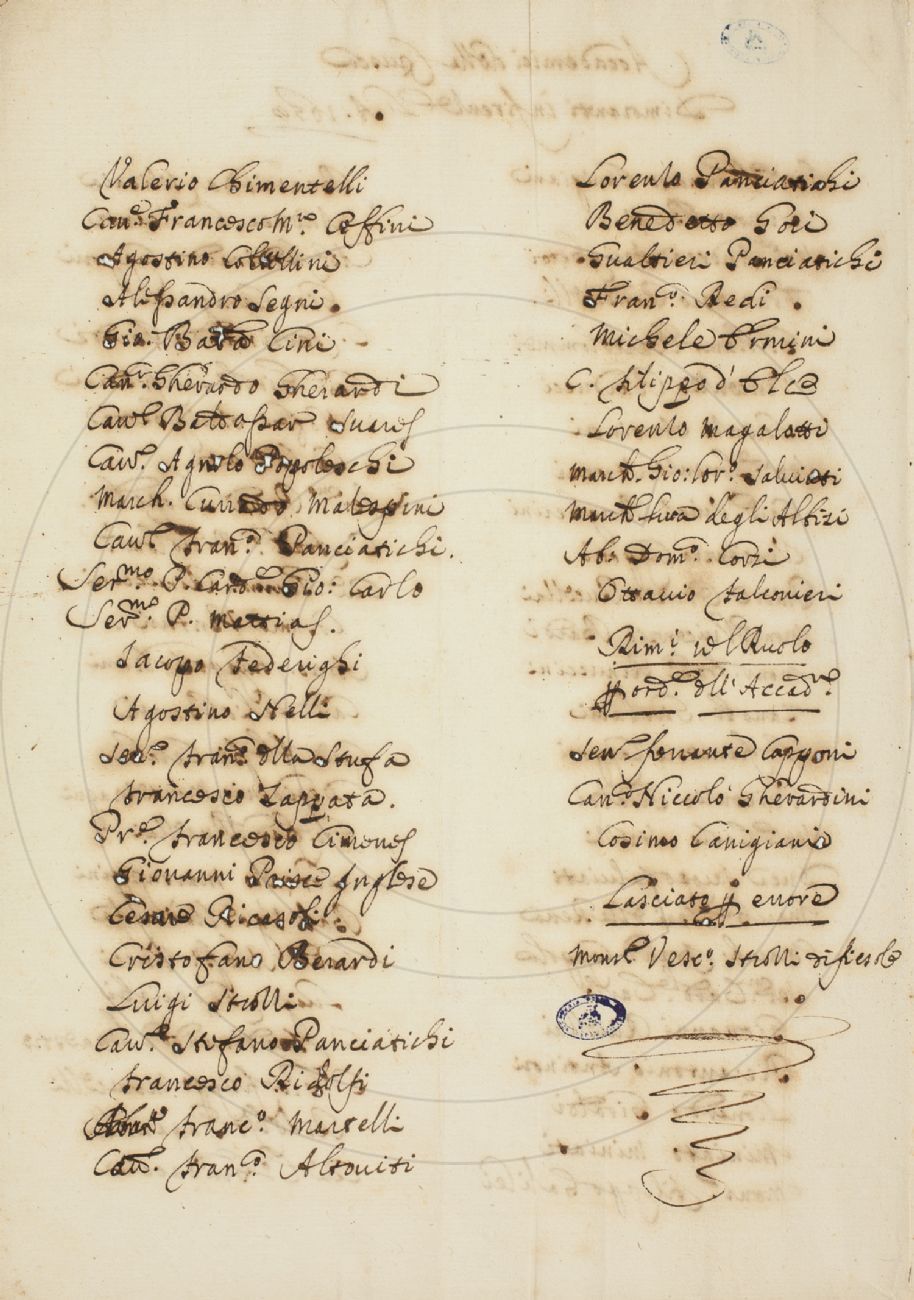 Valerio Chimentelli
Cav.e Francesco M.a Ceffini
Agostino Coltellini
Alessandro Segni
Gio. Bat.a Cini
Cav.r Gherardo Gherardi
Cav.l Baldassar Suares
Cav.l Agnolo Popoleschi
March. Malespini
Cav.l Fran.o Panciatichi.
Ser.mo P. Card.le Gio: Carlo
Ser.mo P. Mattias.
Jacopo Federighi
Agostino Nelli
Sen.e Fran.o dlla Stufa
Francesco Zappata.
Pr.e Francesco Cimenes
Giovanni Inglese
Cesare Ricasoli
Cristofano Berardi
Luigi Strozzi
Cav.l Stefano Panciatichi
Francesco Ridolfi
Franc.o Martelli
Cav. Fran.o Altoviti
Lorenzo Panciatichi
Benedetto Gori
Gualtieri Panciatichi
Fran.o Redi
Michele Ermini
C. Filippo d'Elci
Lorenzo Magalotti
March. Gio: Lor.o Salviati
March. Luca degli Albizi
Ab. Dom.o Corzi
Ottavio Falconieri
Rim.i nel Ruolo
p ord.e dll'Accad.a
Sen.e Ferrante Capponi
Can.o Niccolò Gherardini
Cosimo Canigiani
Lasciato p errore
Mons.e Vesc.o Strozzi di Fiesole